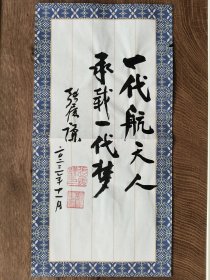 一代航天人
承载一代梦
二〇二三年十一月